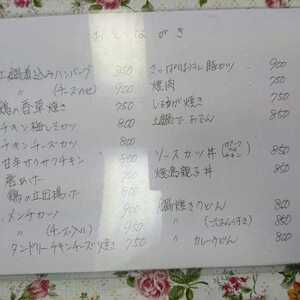 おしながき
土鍋煮込みハンバーグ 850
〃 (チーズのせ) 950
鶏の香草焼き 750
チキン カツ 800
チキンチーズカツ 800
甘辛サクサクチキン 800
800
鶏の立田揚げ 800
メンチカツ 900
〃 (チーズ入り) 950
タンドリーチキンチーズ焼き 750
さっぱりおろし豚カツ 900
焼肉 750
しょうが焼き 750
土鍋でおでん 850
ソースカツ丼 850
焼鳥親子丼 850
鍋焼きうどん 800
〃 (ごはん付き) 850
〃 カレーうどん 800